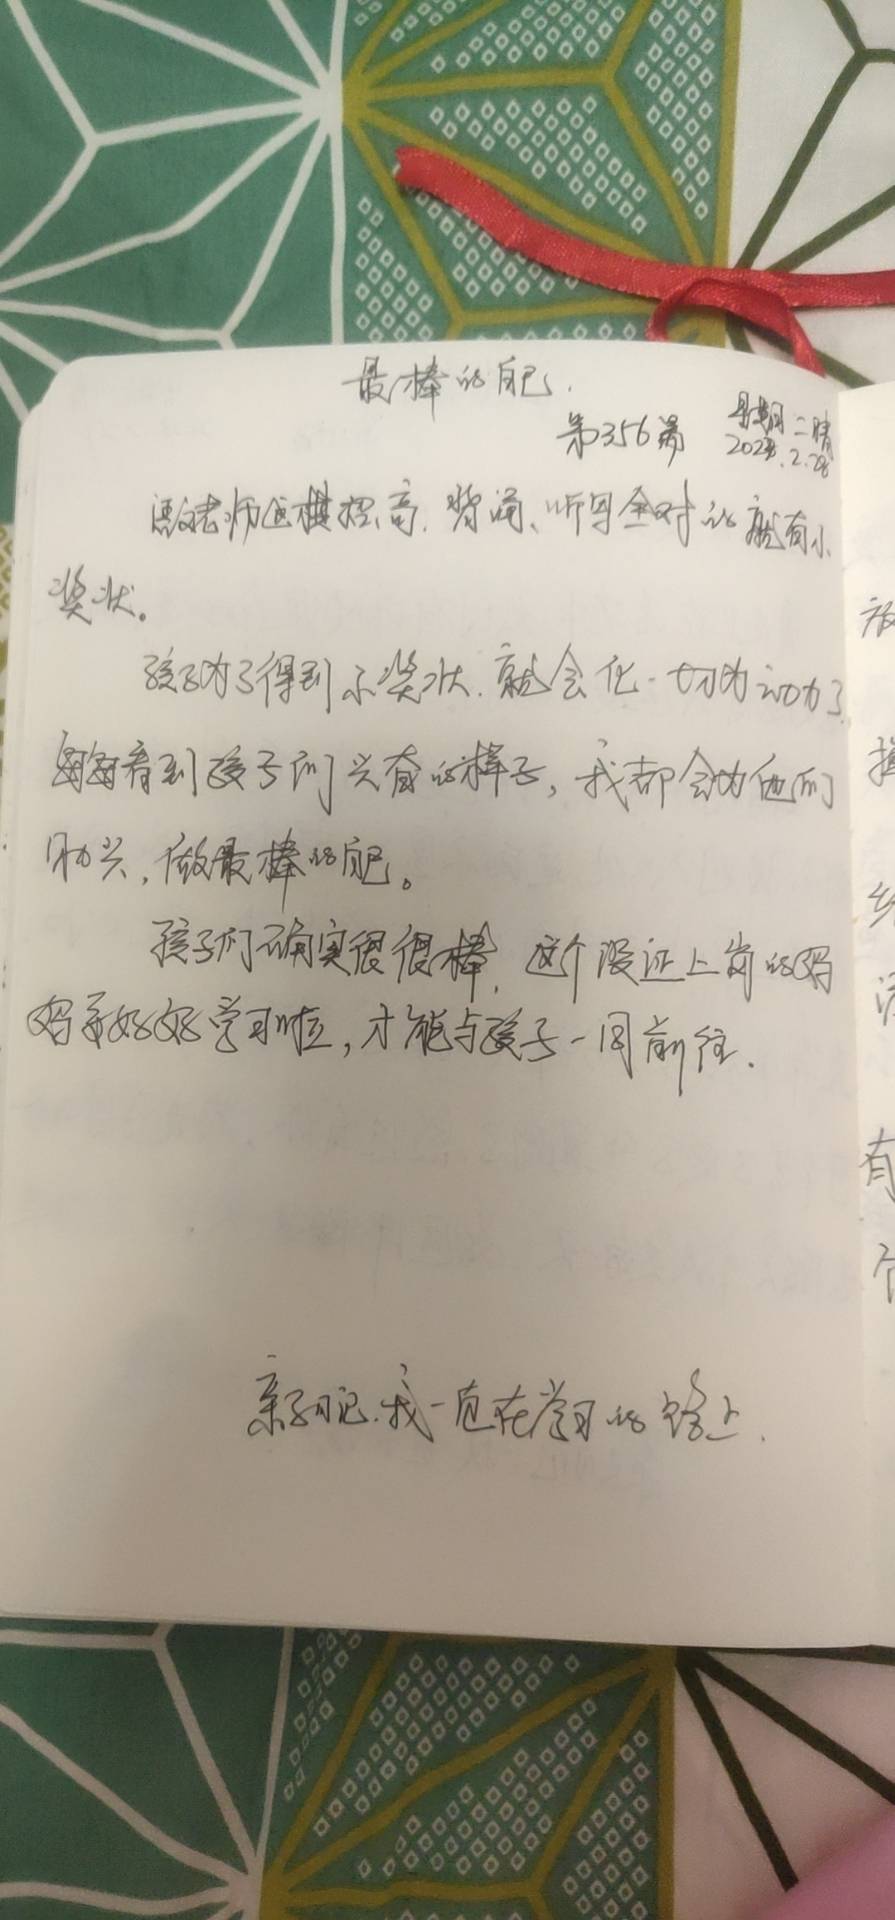 最棒的自己.
第356篇 星期二晴
2023.2.28
老师这棋招高.背诵、听写全对的就有小
奖状。
孩子为了得到小奖状.就会化一切为动力了.
每每看到孩子们兴奋的样子，我都会为他们
助兴，做最棒的自己。
孩子们确实很很棒，这个没证上岗的妈
妈要好好学习啦，才能与孩子一同前往.
亲子日记.我一直在学习的路上.
有
个